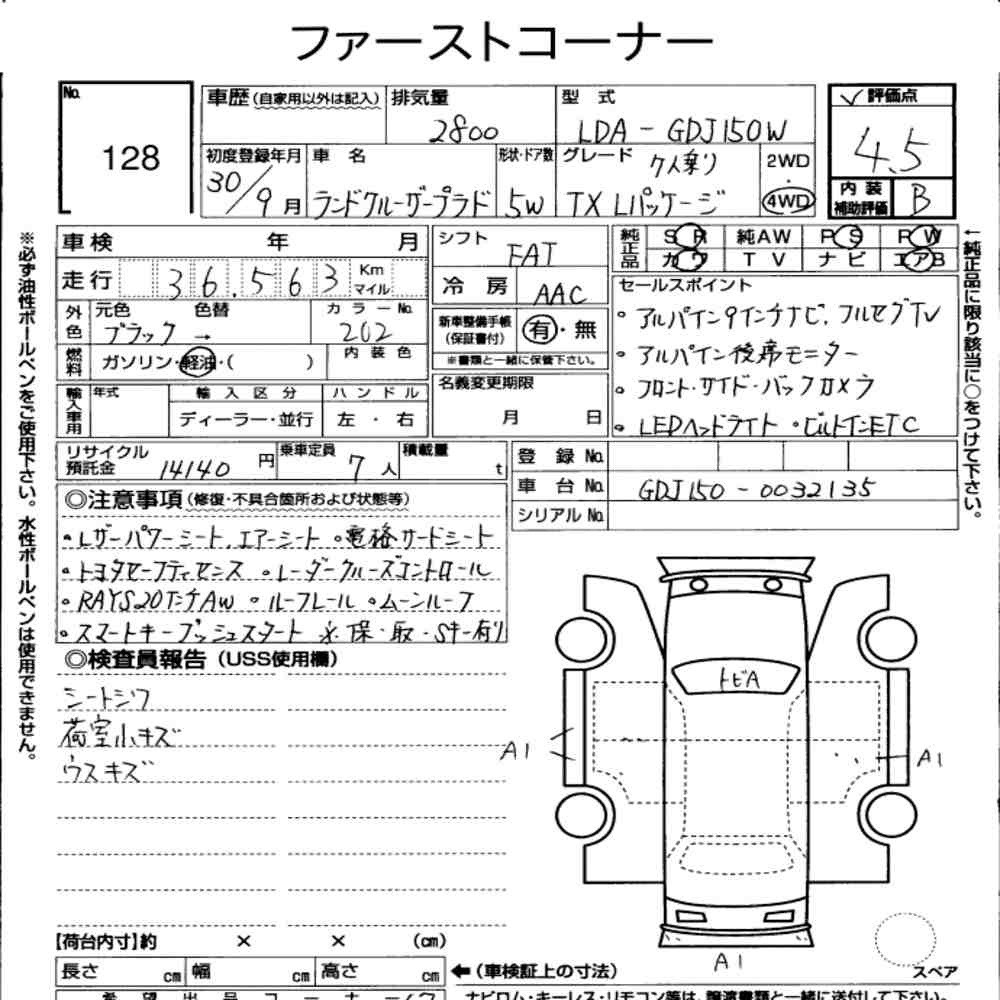 ファーストコーナー
No. 128
車歴(自家用以外は記入) 排気量 2800
型式 LDA-GDJ150W
✓評価点 4.5
内装補助評価 B
初度登録年月 30/9月
車名 ランドクルーザープラド
形状・ドア数 5W
グレード 7人乗り TX Lパッケージ
2WD・4WD
車検 年 月
走行 36,563 Km マイル
シフト FAT
冷房 AAC
純正品 SR 純AW PS PW
カワ TV ナビ エアB
外色 元色 色替 ブラック→
カラーNo. 202
燃料 ガソリン・軽油・( )
内装色
新車整備手帳(保証書付) 有・無
※書類と一緒に保管下さい。
輸入車用 年式 輸入区分 ディーラー・並行
ハンドル 左・右
名義変更期限 月 日
セールスポイント
。アルパイン9インチナビ、フルセグTV
・アルパイン後席モニター
・フロント・サイド・バックカメラ
・LEDヘッドライト ・ビルトインETC
リサイクル預託金 14140円
乗車定員 7人
積載量 t
登録No.
車台No. GDJ150-0032135
シリアルNo.
◎注意事項(修復・不具合箇所および状態等)
・Lザーパワーシート、エアーシート 。電格サードシート
・トヨタセーフティセンス 。レーダークルーズコントロール
・RAYS20インチAW 。ルーフレール 。ムーンルーフ
。スマートキープッシュスタート ※保・取・Sキー有り
◎検査員報告(USS使用欄)
シートシワ
荷室小キズ
ウスキズ
トビA
A1
A1
A1
スペア
【荷台内寸】約 × × (cm)
長さ cm 幅 cm 高さ cm
←(車検証上の寸法)
希望出品コーナー/ク
ナビロム・キーレス・リモコン等は、譲渡書類と一緒に送付して下さい。
※必ず油性ボールペンをご使用下さい。水性ボールペンは使用できません。
←純正品に限り該当に○をつけて下さい。